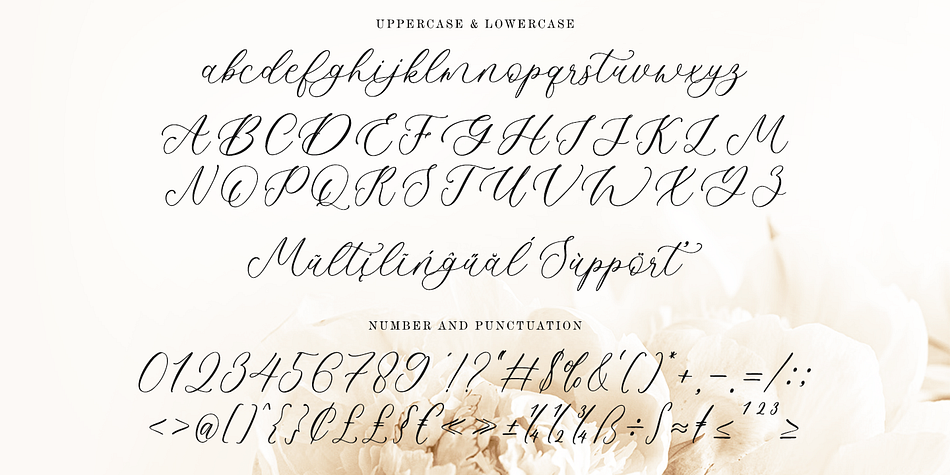 UPPERCASE & LOWERCASE
abcdefghijklmnopqrstuvwxyz
ABCDEFGHIJKLM
NOPQRSTUVWXYZ
Mūltįlīńĝűăĺ Sùppörť
NUMBER AND PUNCTUATION
0123456789'!?"#$%&'()*+,-.=/:;
<>@[]^{}₵£₤§€«»±¼½¾ß÷∫≈≠≤¹²³≥